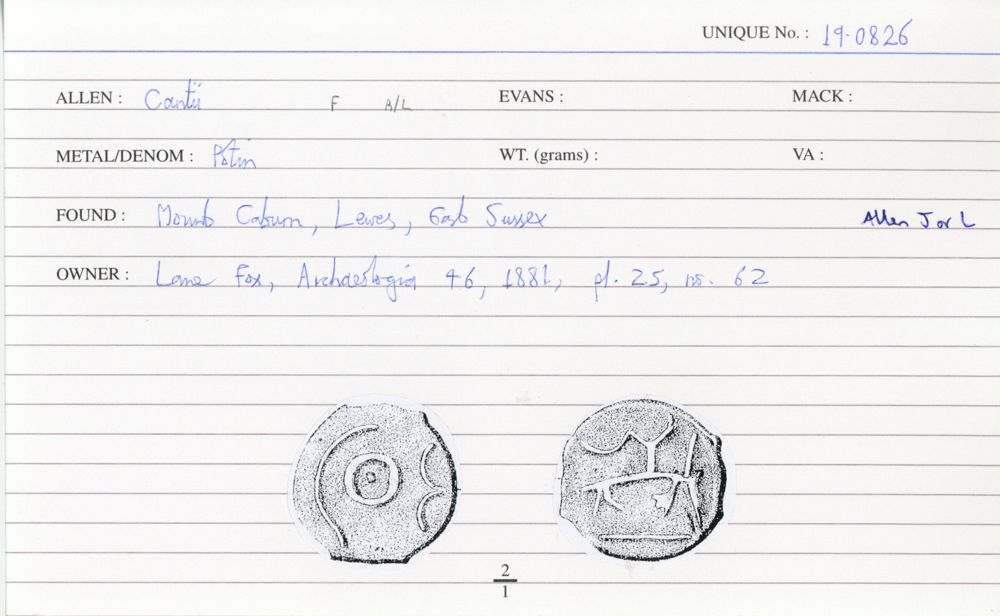 UNIQUE No. : 19·0826
ALLEN : Cantii F A/L EVANS : MACK :
METAL/DENOM : Potin WT. (grams) : VA :
FOUND : Mount Caburn, Lewes, East Sussex Allen J or L
OWNER : Lane Fox, Archaeologia 46, 1881, pl. 25, no. 62
2
1